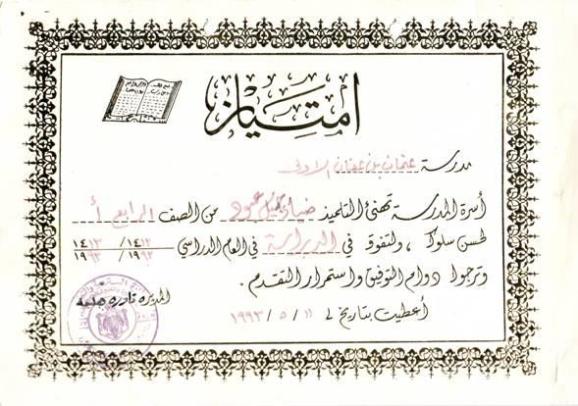 امتياز
مدرسة عثمان بن عفان الاولى
أسرة المدرسة تهنئ التلميذ ضياء عبود من الصف الرابع أ
لحسن سلوكه ، ولتفوقه في الدراسة في العام الدراسي ١٤١٢/١٤١٣ ١٩٩٢/١٩٩٣
وترجوا دوام التوفيق واستمرار التقدم .
المديرة نادره
أعطيت بتاريخ لـ ١١ / ٥ / ١٩٩٣